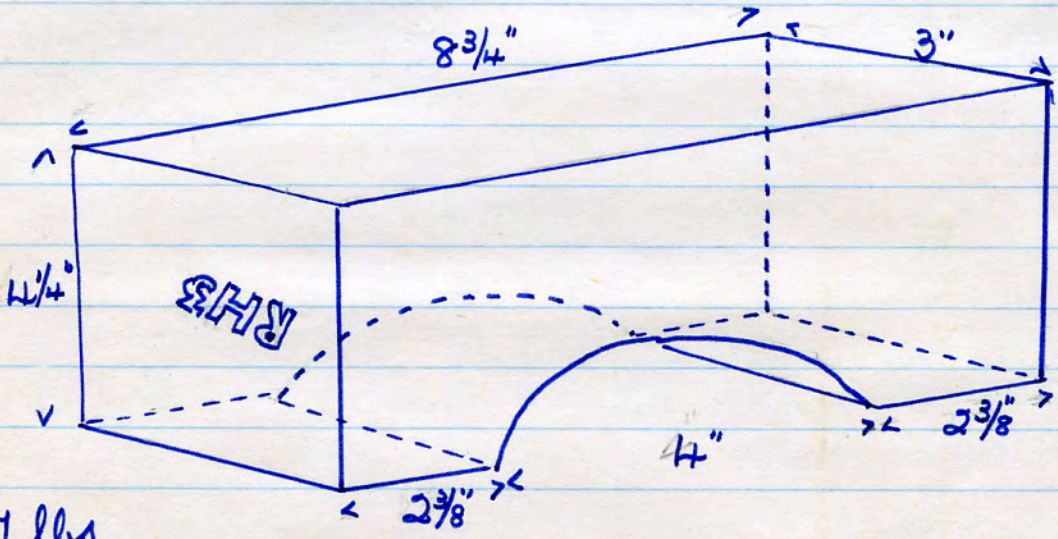 8 3/4"
3"
4 1/4"
RH3
2 3/8"
4"
2 3/8"